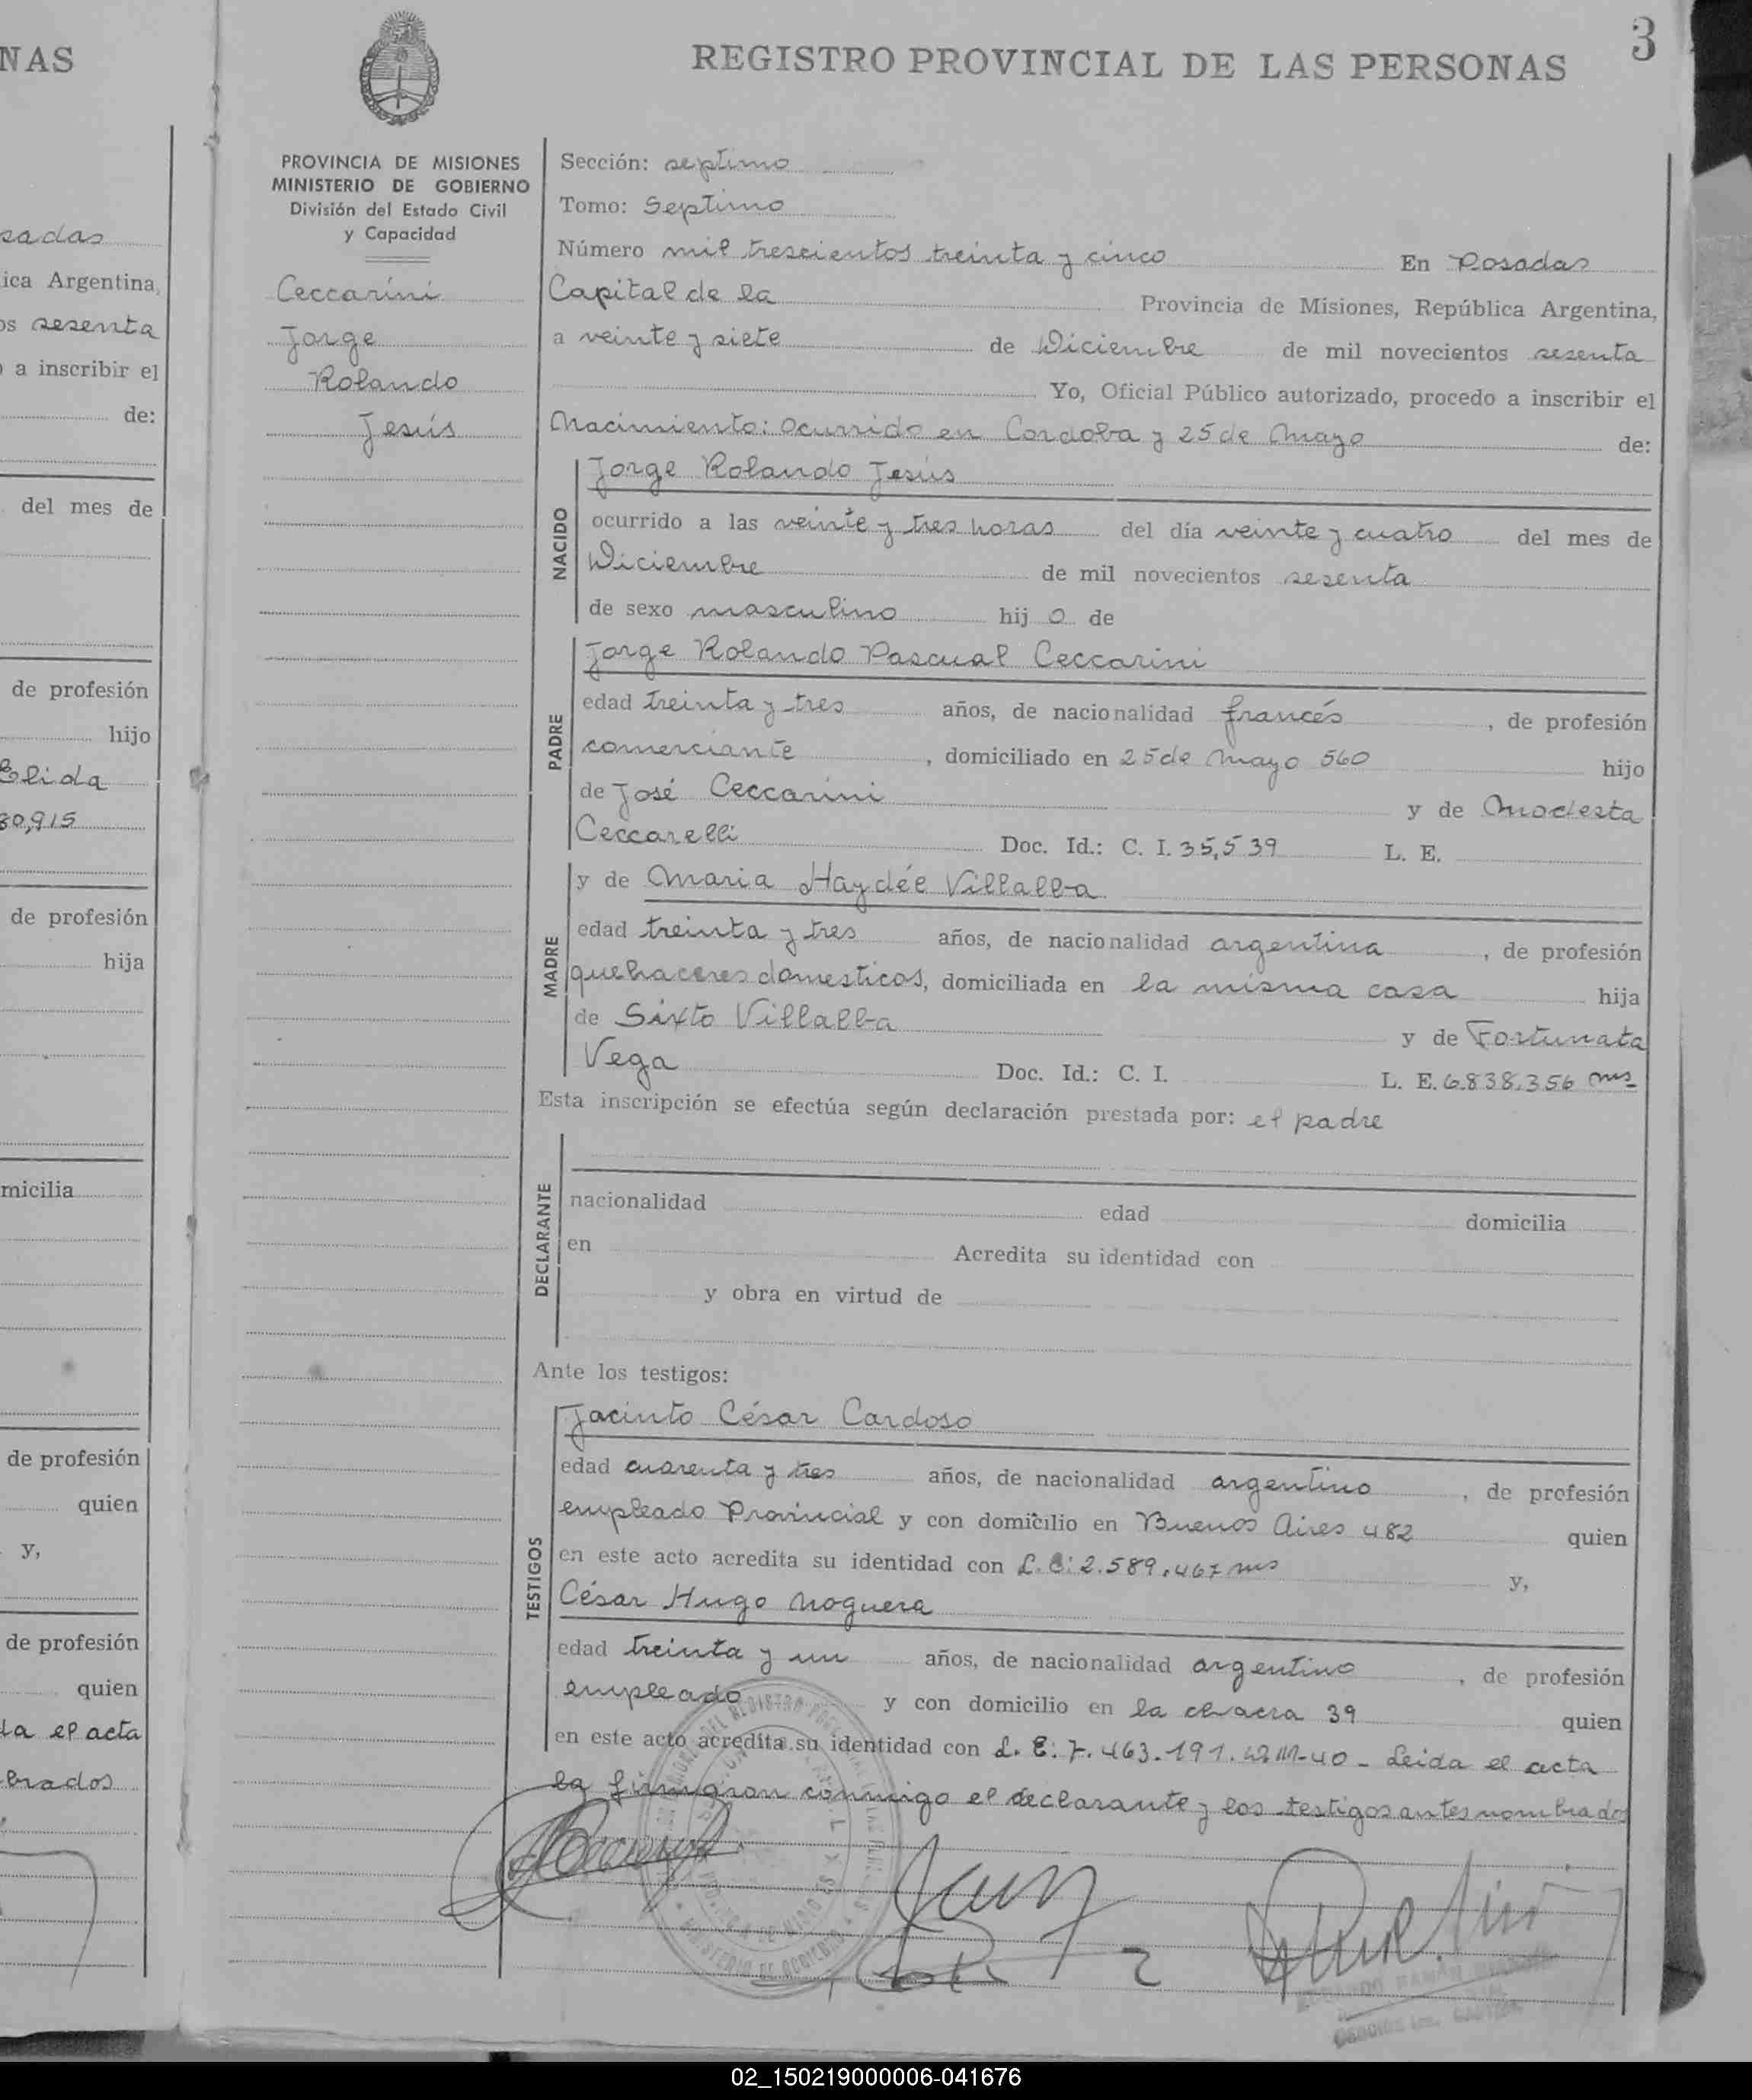 NAS
REGISTRO PROVINCIAL DE LAS PERSONAS
3
PROVINCIA DE MISIONES
MINISTERIO DE GOBIERNO
División del Estado Civil
y Capacidad
Ceccarini
Jorge
Rolando
Jesús
sadas
ica Argentina,
os sesenta
o a inscribir el
de:
del mes de
de profesión
hijo
Elida
80,915
de profesión
hija
micilia
de profesión
quien
y,
de profesión
quien
da el acta
brados
Sección: septimo
Tomo: Septimo
Número mil trescientos treinta y cinco En Posadas
Capital de la Provincia de Misiones, República Argentina,
a veinte y siete de Diciembre de mil novecientos sesenta
Yo, Oficial Público autorizado, procedo a inscribir el
Nacimiento: Ocurrido en Cordoba y 25 de Mayo de:
NACIDO
Jorge Rolando Jesús
ocurrido a las veinte y tres horas del día veinte y cuatro del mes de
Diciembre de mil novecientos sesenta
de sexo masculino hij o de
PADRE
Jorge Rolando Pascual Ceccarini
edad treinta y tres años, de nacionalidad francés, de profesión
comerciante, domiciliado en 25 de Mayo 560 hijo
de José Ceccarini y de Modesta
Ceccarelli Doc. Id.: C. I. 35,539 L. E.
MADRE
y de Maria Haydée Villalba
edad treinta y tres años, de nacionalidad argentina, de profesión
quehaceres domesticos, domiciliada en la misma casa hija
de Sixto Villalba y de Fortunata
Vega Doc. Id.: C. I. L. E. 6.838.356 ms
Esta inscripción se efectúa según declaración prestada por: el padre
DECLARANTE
nacionalidad edad domicilia
en Acredita su identidad con
y obra en virtud de
Ante los testigos:
TESTIGOS
Jacinto César Cardoso
edad cuarenta y tres años, de nacionalidad argentino, de profesión
empleado Provincial y con domicilio en Buenos Aires 482 quien
en este acto acredita su identidad con L. E: 2.589.467 ms y,
César Hugo Noguera
edad treinta y un años, de nacionalidad argentino, de profesión
empleado y con domicilio en la chacra 39 quien
en este acto acredita su identidad con L. E: 7.463.191. M-40 - Leida el acta
la firmaron conmigo el declarante y los testigos antes nombrados
02_150219000006-041676